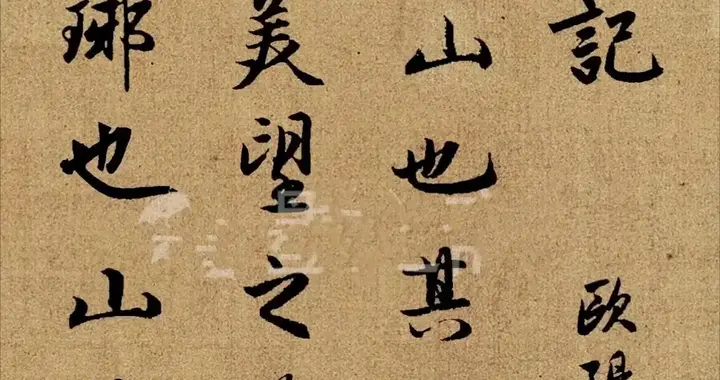 記 歐陽
山也其
美望之
琊也山